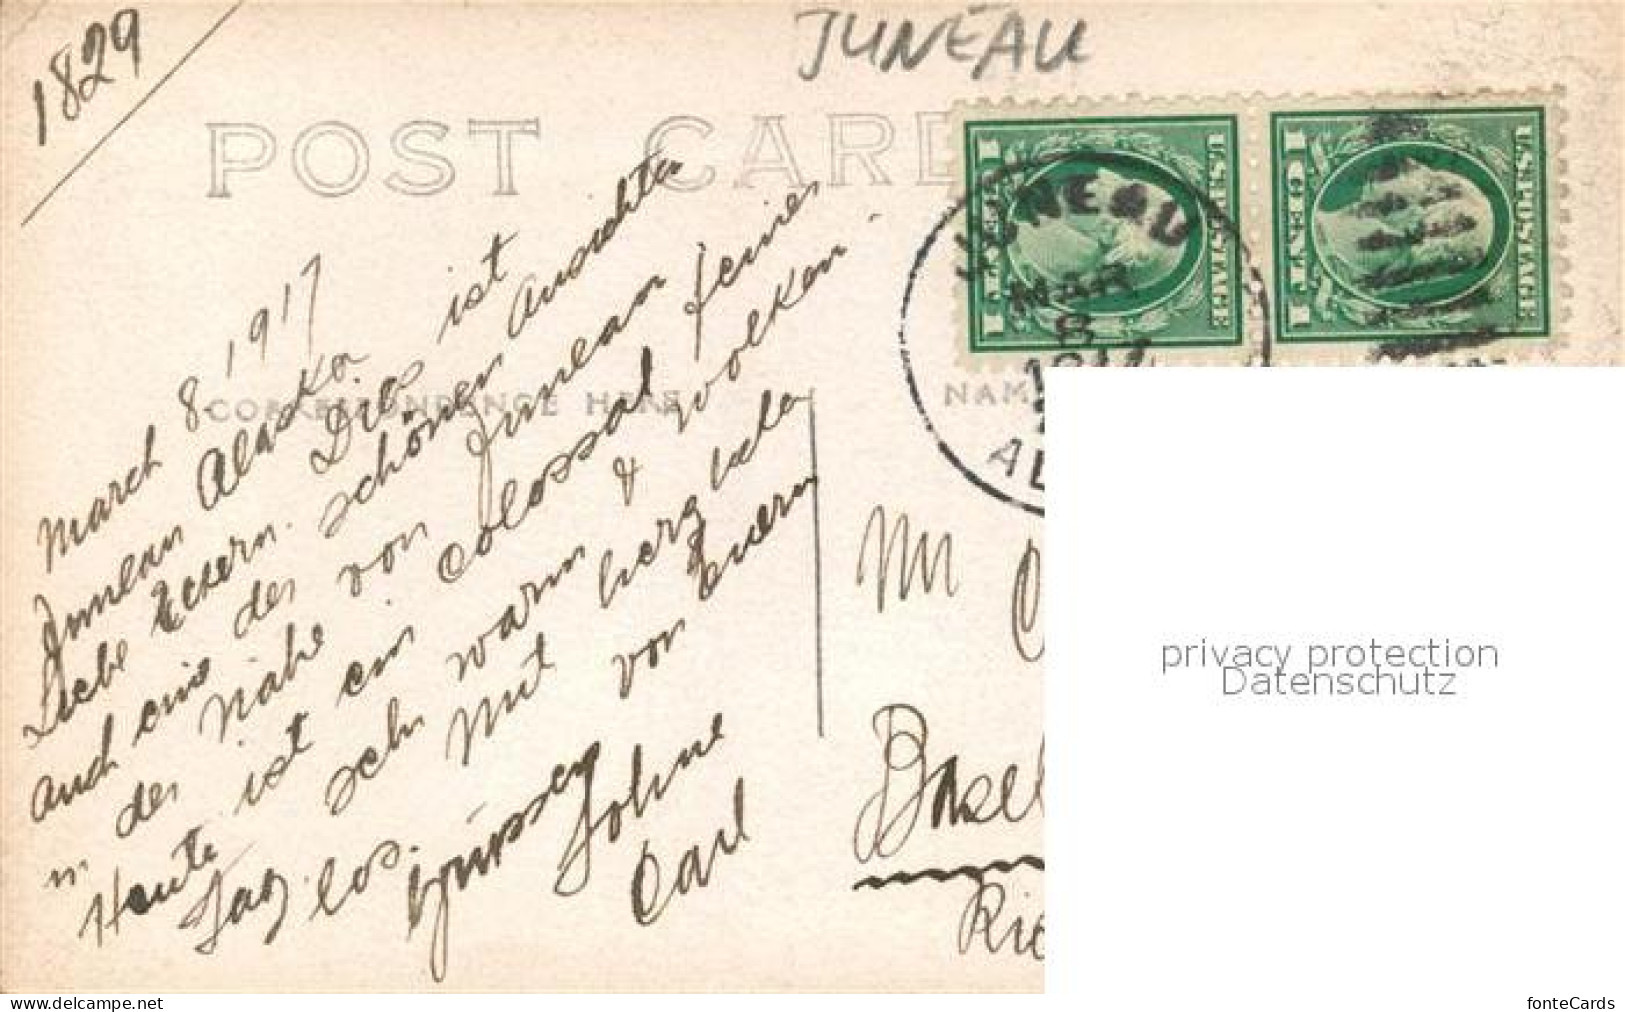 1829
JUNEAU
POST CARD
JUNEAU
MAR
8
1917
AL
1 CENT 1
U.S. POSTAGE
1 CENT 1
U.S. POSTAGE
CORRESPONDENCE HERE
NAM
March 8. 1917
Juneau Alaska
Liebe Eltern. Dies ist
auch eins der schönen Ansichten
in der Nähe von Juneau
Heute ist ein colossal feiner
Tag sehr warm & wolken
los. Mit herz
Grüssen von Euern
Sohne
Carl
Mr
Basel
Ric
privacy protection
Datenschutz
www.delcampe.net
fonteCards